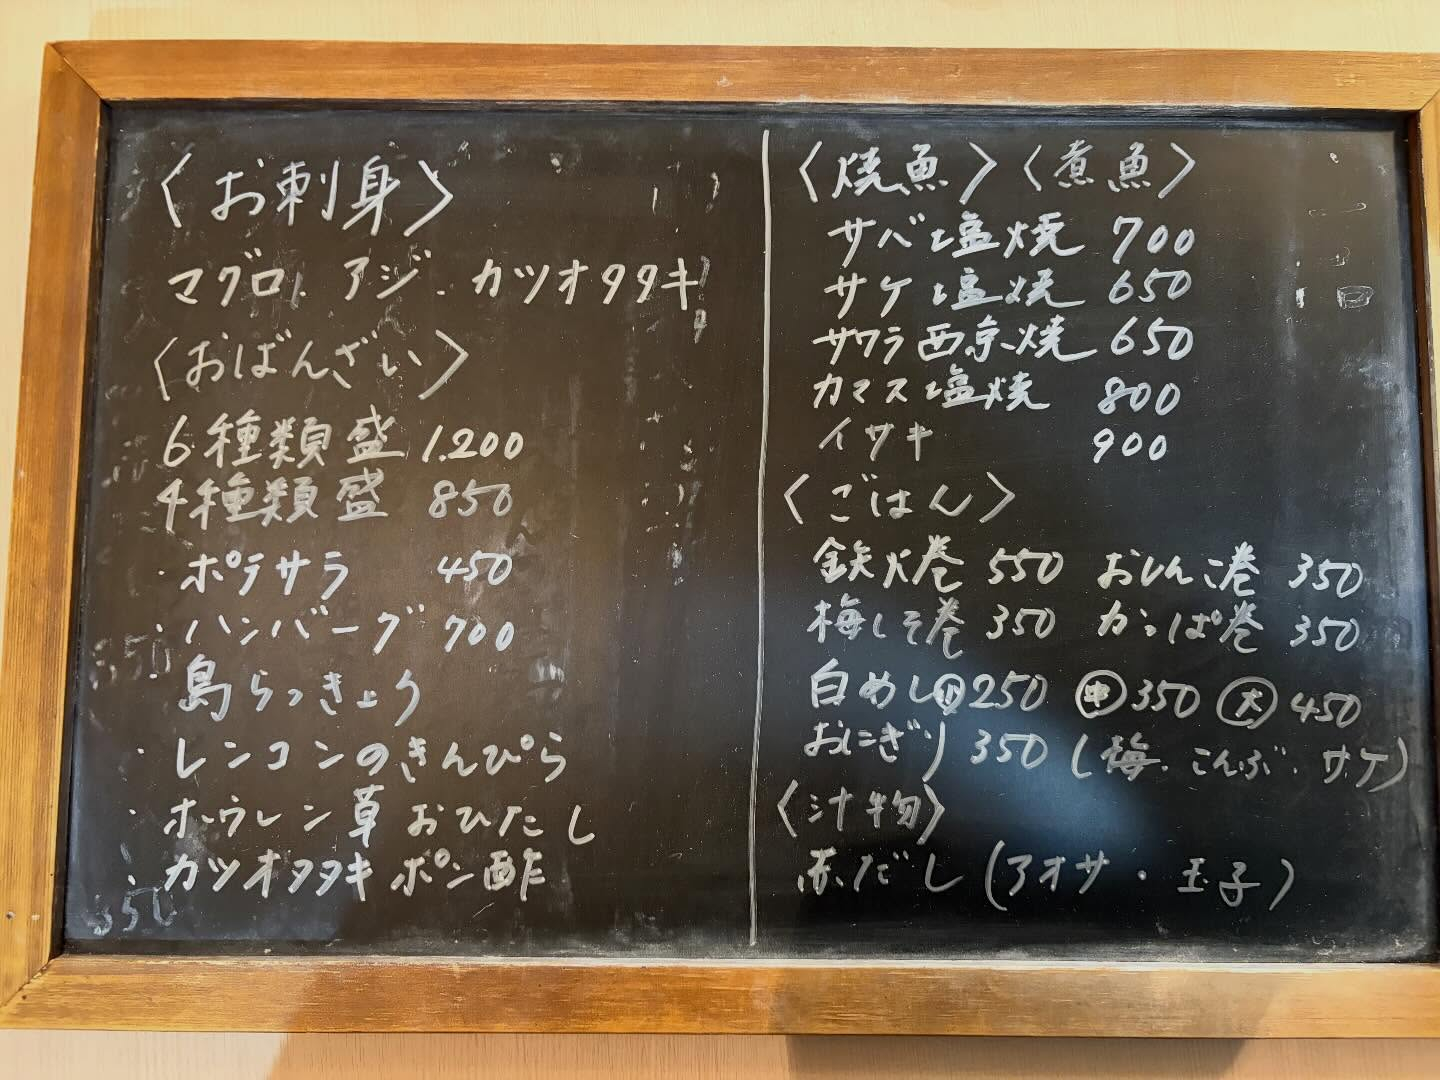 〈お刺身〉
マグロ、アジ、カツオタタキ
〈おばんざい〉
6種類盛 1.200
4種類盛 850
・ポテサラ 450
・ハンバーグ 700
・島らっきょう
・レンコンのきんぴら
・ホウレン草おひたし
・カツオタタキ ポン酢
350
350
〈焼魚〉〈煮魚〉
サバ塩焼 700
サケ塩焼 650
サワラ西京焼 650
カマス塩焼 800
イサキ 900
〈ごはん〉
鉄火巻 550 おしんこ巻 350
梅しそ巻 350 かっぱ巻 350
白めし㋛250 ㊥350 大450
おにぎり 350 (梅.こんぶ.サケ)
〈汁物〉
赤だし(アオサ・玉子)